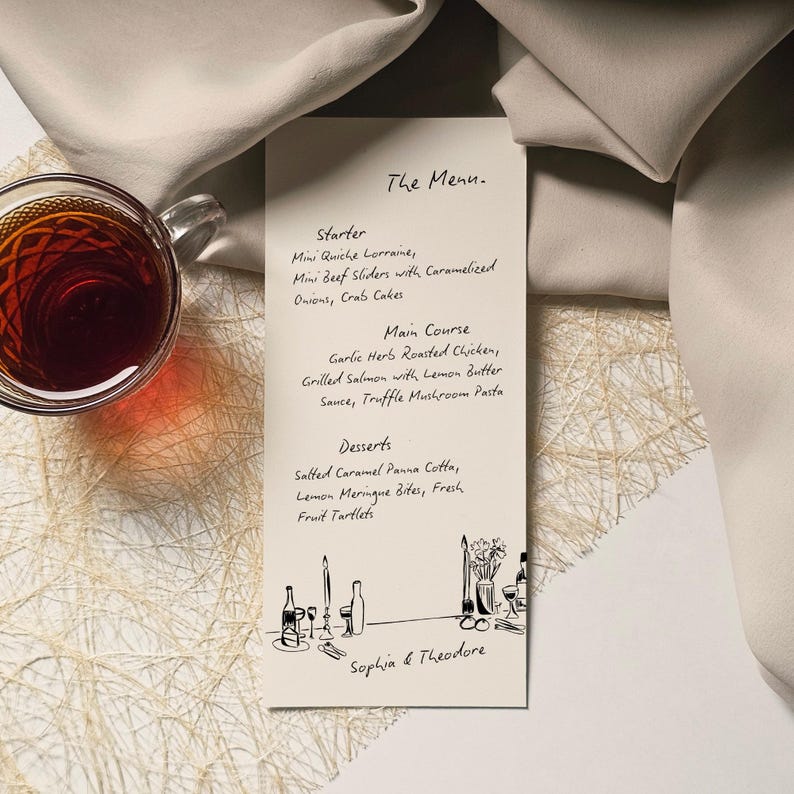 The Menu.
Starter
Mini Quiche Lorraine,
Mini Beef Sliders with Caramelized
Onions, Crab Cakes
Main Course
Garlic Herb Roasted Chicken,
Grilled Salmon with Lemon Butter
Sauce, Truffle Mushroom Pasta
Desserts
Salted Caramel Panna Cotta,
Lemon Meringue Bites, Fresh
Fruit Tartlets
Sophia & Theodore